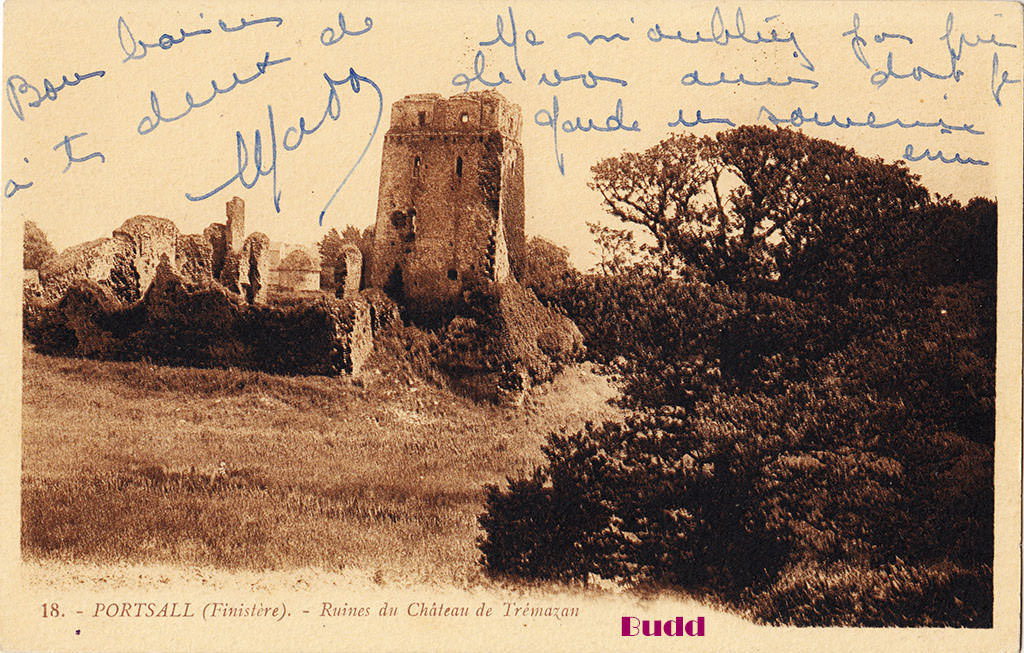 Bons baisers de
à tous deux
Mado
Ne m'oubliez pas près
de vos amis dont je
garde un souvenir
ému
18. - PORTSALL (Finistère). - Ruines du Château de Trémazan
Budd